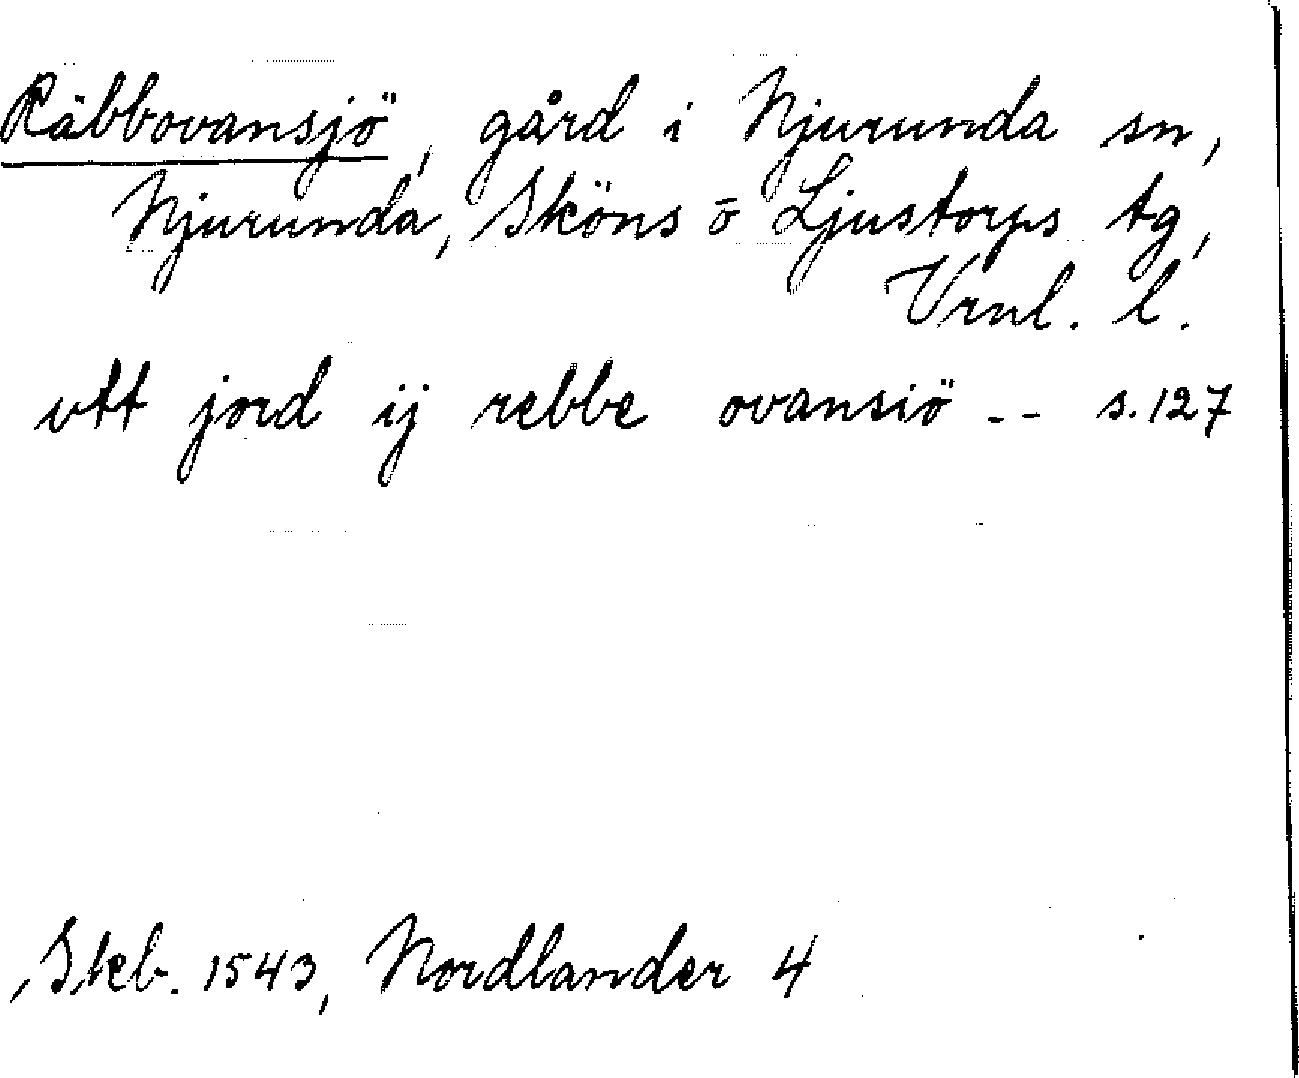 Räbbovansjö, gård i Njurunda sn,
Njurunda, Sköns o Ljustorps tg,
Vrnl. l.
vtt jord ij rebbe ovansiö -- s. 127
Skb. 1543, Nordlander 4